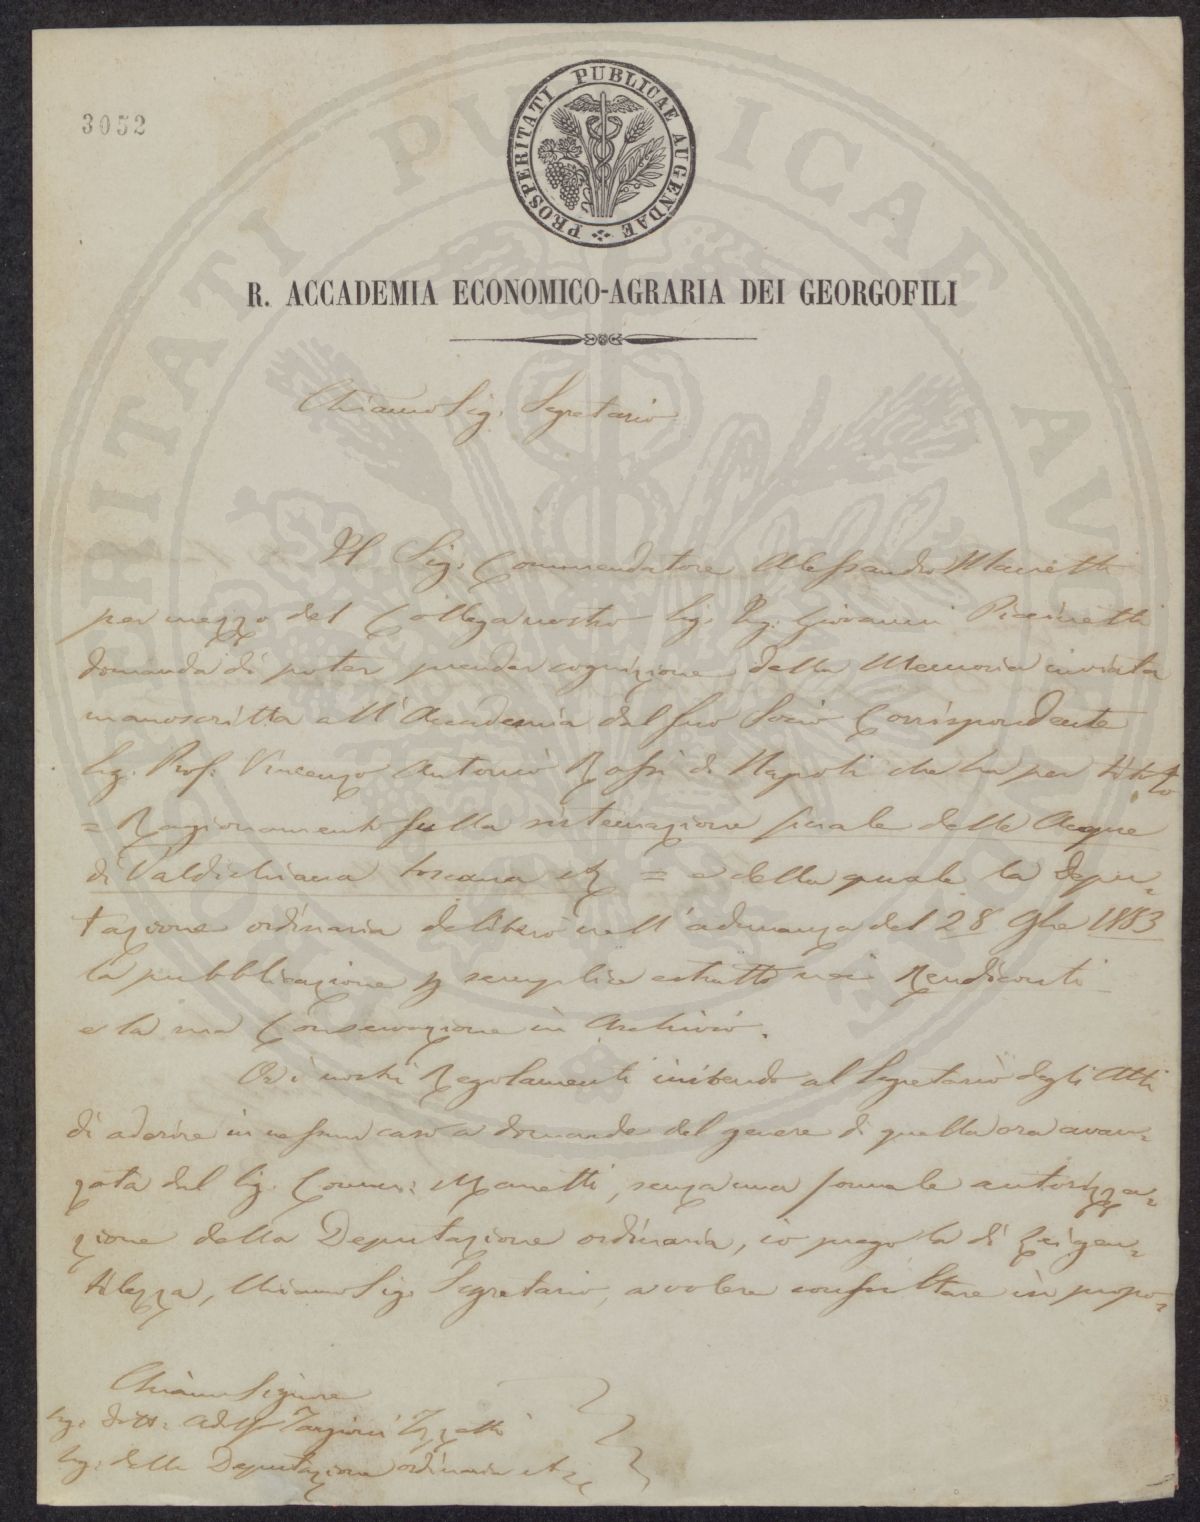 3052
PROSPERITATI PUBLICAE AUGENDAE
R. ACCADEMIA ECONOMICO-AGRARIA DEI GEORGOFILI
Chiarmo Sig. Segretario
Il Sig. Commendatore Alessandro Manetti
per mezzo del Collega nostro Sig. Ing. Giovanni Piccinetti
domanda di poter prender cognizione della Memoria inviata
manoscritta all'Accademia dal suo Socio Corrispondente
Sig. Prof. Vincenzo Antonio Rossi di Napoli che ha per titolo
= Ragionamento sulla sistemazione finale delle Acque
di Valdichiana toscana = e della quale la Depu-
tazione ordinaria deliberò nell'adunanza del 28 9bre
la pubblicazione p semplice estratto nei Rendiconti
e la sua Conservazione in Archivio.
Or i nostri Regolamenti inibendo al Segretario degli Atti
di aderire in nessun caso a domande del genere di quella ora avan-
zata dal Sig. Comm: Manetti, senza una formale autorizza-
zione della Deputazione ordinaria, io prego la di Lei gen-
tilezza, Chiarmo Sig. Segretario, a volere consultare in propo-
Chiarmo Signore
Sig. Dott: Adolfo Targioni Tozzetti
Seg: della Deputazione ordinaria